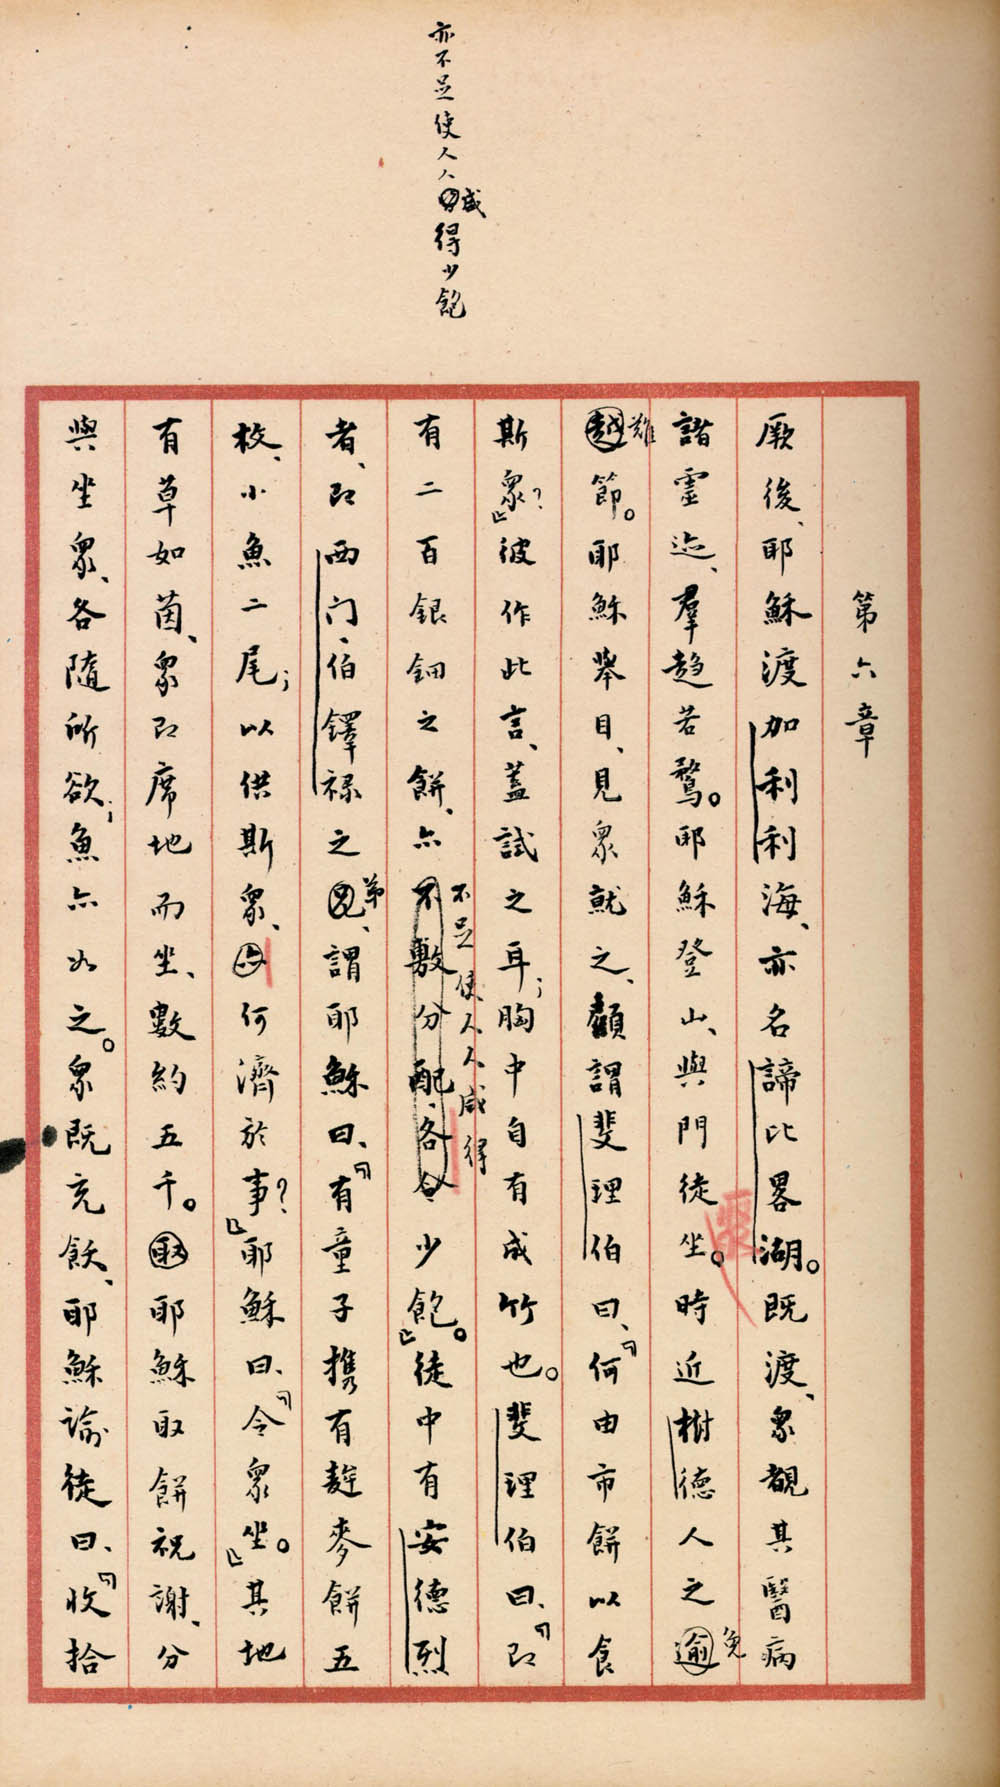 亦不足使人人咸得少飽
第六章
厥後、耶穌渡加利利海、亦名諦比畧湖。既渡、衆覩其醫病
諸靈迹、羣趨若鶩。耶穌登山、與門徒坐。時近樹德人之逾免
越難節。耶穌舉目、見衆就之、顧謂斐理伯曰、『何由市餅以食
斯衆?』彼作此言、蓋試之耳;胸中自有成竹也。斐理伯曰、『即
不足使人人咸得
有二百銀鈿之餅、亦不敷分配、各令少飽。』徒中有安德烈
者、即西门、伯鐸祿之兄弟、謂耶穌曰、『有童子攜有麰麥餅五
枚、小魚二尾;以供斯衆、何濟於事?』耶穌曰、『令衆坐。』其地
有草如茵、衆即席地而坐、數約五千。取耶穌取餅祝謝、分
與坐衆、各隨所欲;魚亦如之。衆既充飫、耶穌諭徒曰、『收拾